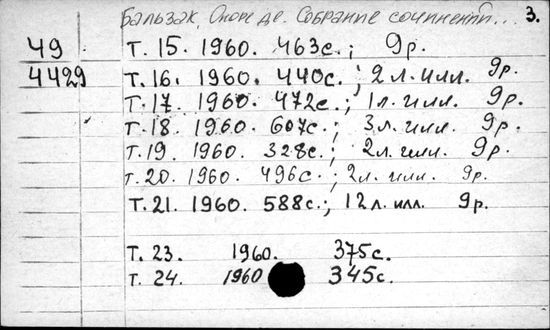 Бальзак, Оноре де. Собрание сочинений... 3.
49 Т. 15. 1960. 463с.; 9р.
4429 Т. 16. 1960. 440с.; 2л. илл. 9р.
Т. 17. 1960. 472с.; 1л. илл. 9р.
Т. 18. 1960. 607с.; 3л. илл. 9р.
Т. 19. 1960. 328с.; 2л. илл. 9р.
Т. 20. 1960. 496с.; 2л. илл. 9р.
Т. 21. 1960. 588с.; 12л. илл. 9р.
Т. 23. 1960. 375с.
Т. 24. 1960 345с.